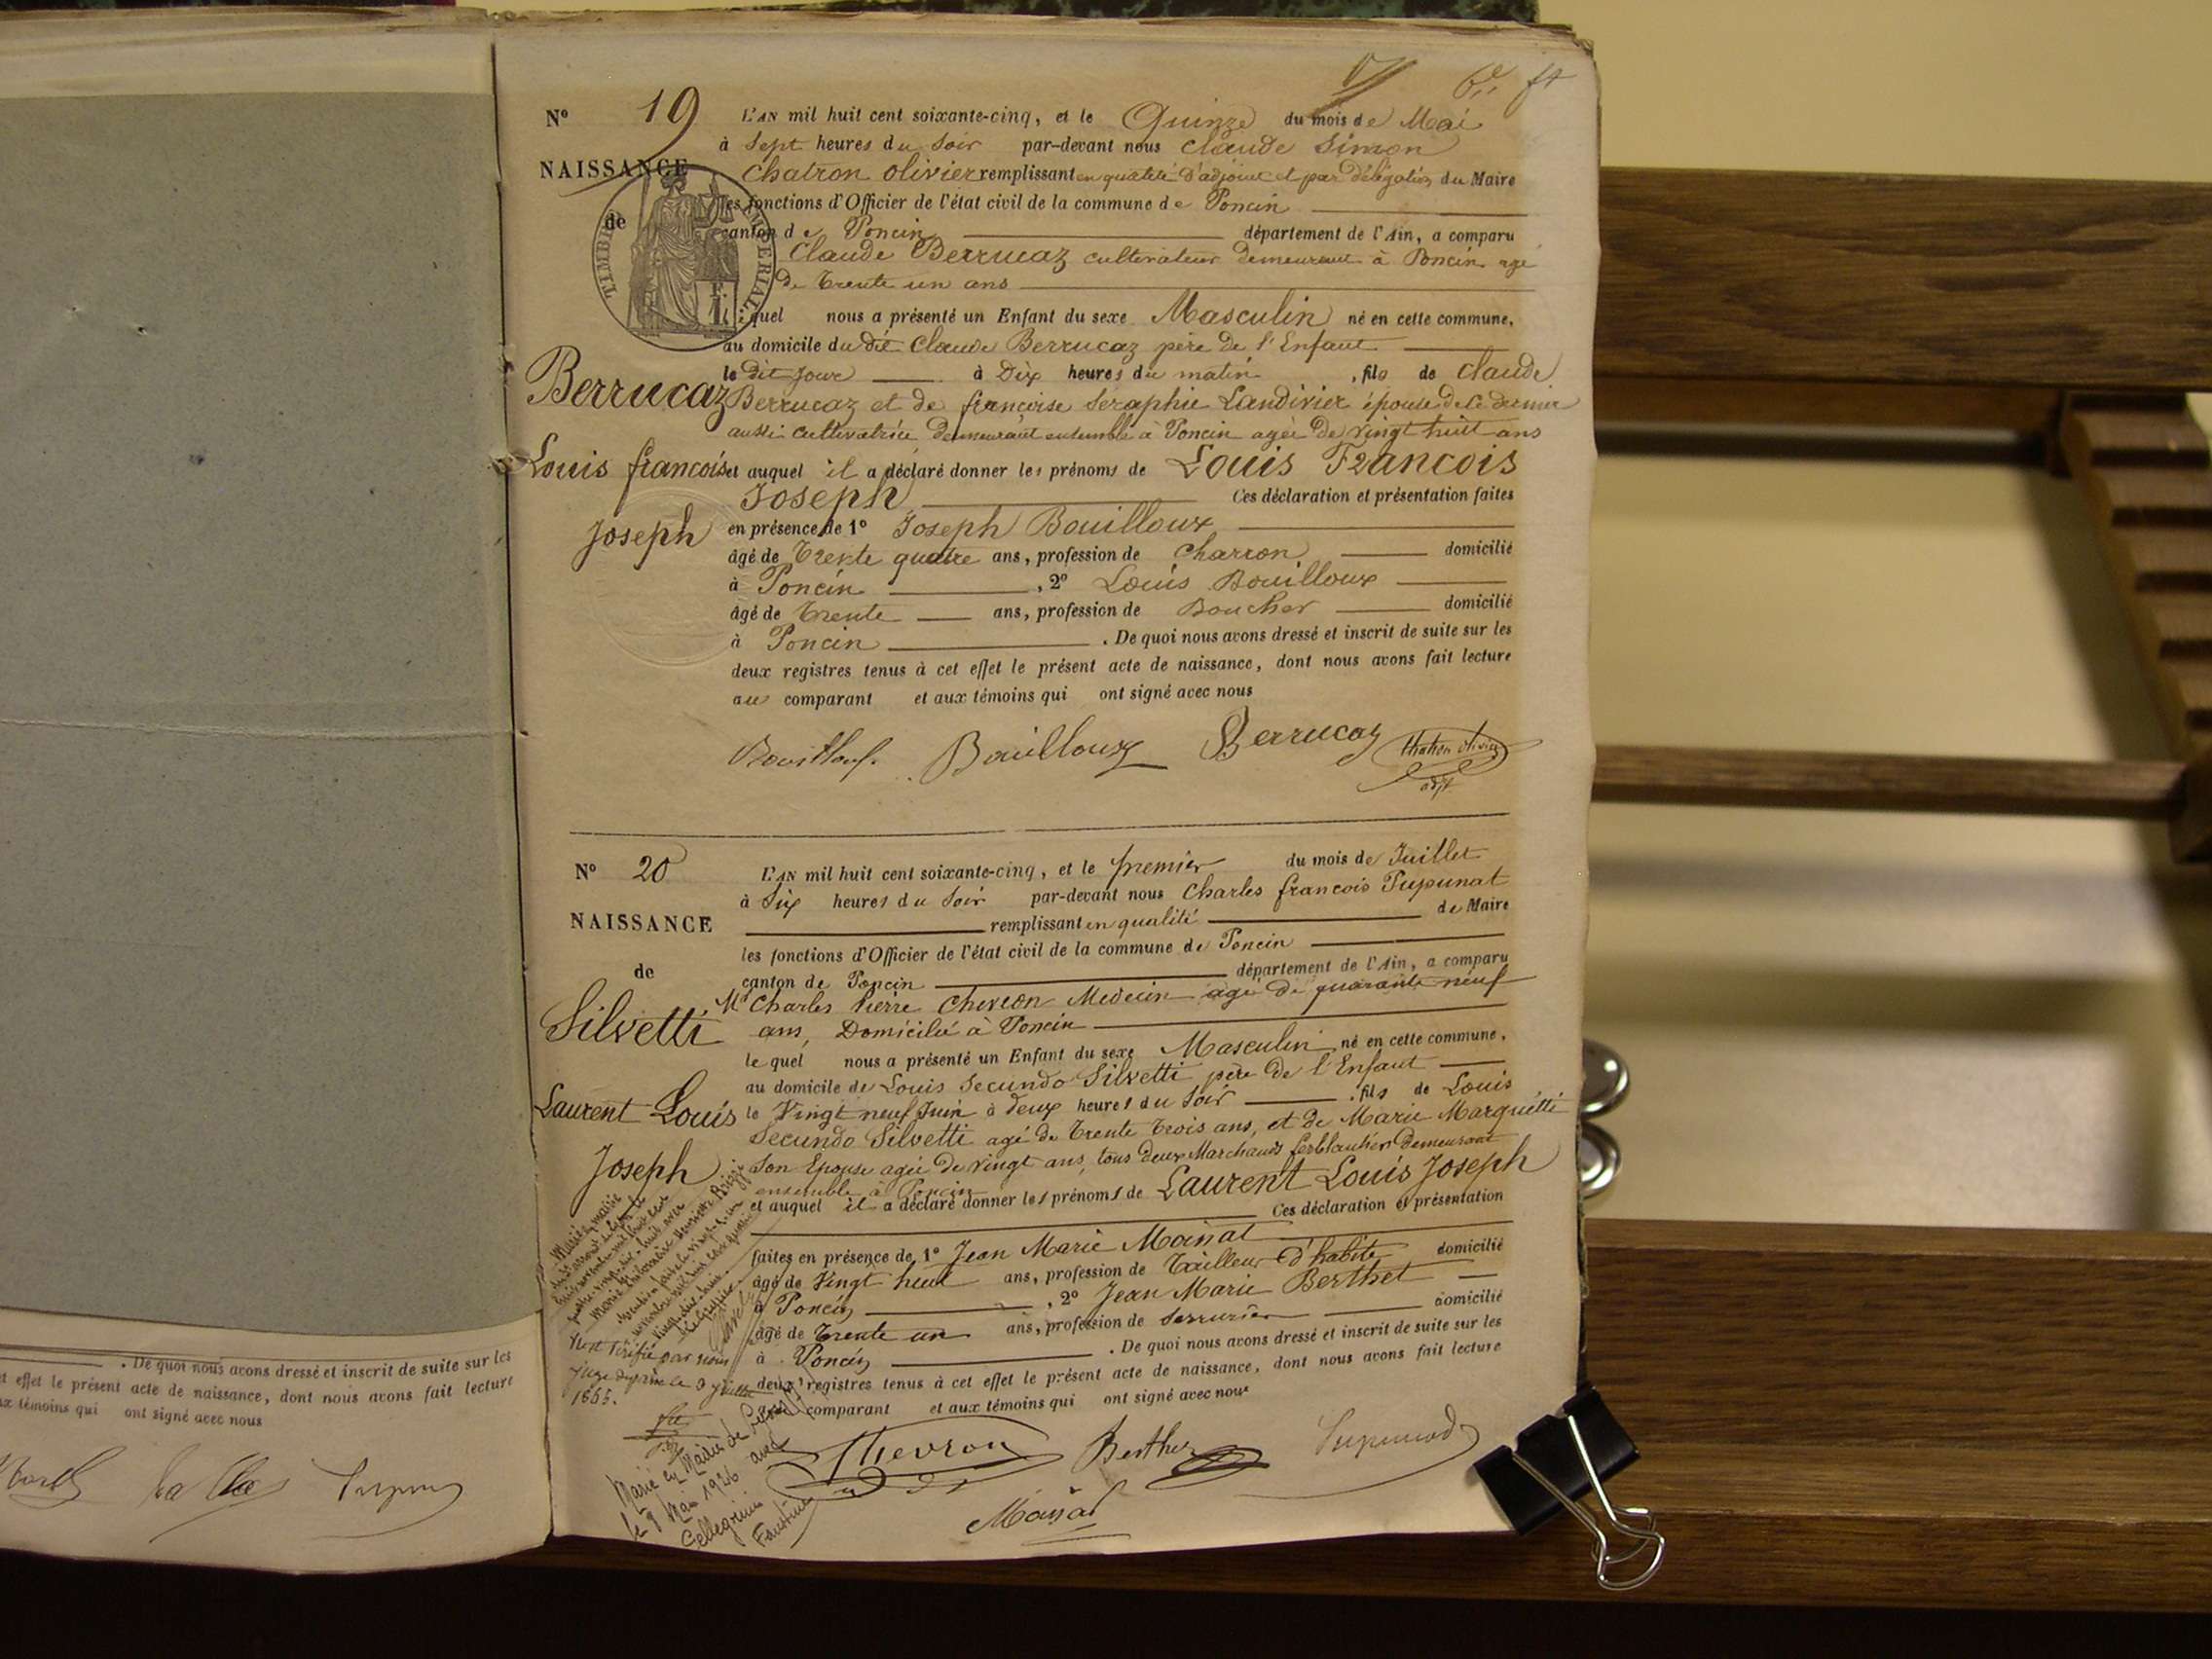 19
Nº 19
NAISSANCE
de
TIMBRE IMPERIAL
Berrucaz
Louis francois
Joseph
L'AN mil huit cent soixante-cinq, et le Quinze du mois de Mai
à Sept heures du Soir par-devant nous Claude Simon
Chatron Olivier remplissant en qualité d'adjoint et par délégation du Maire
les fonctions d'Officier de l'état civil de la commune de Poncin
canton de Poncin département de l'Ain, a comparu
Claude Berrucaz cultivateur demeurant à Poncin agé
de trente un ans
lequel nous a présenté un Enfant du sexe Masculin né en cette commune,
au domicile du dit Claude Berrucaz père de l'Enfant
le dit jour à Dix heures du matin, fils de Claude
Berrucaz et de françoise Seraphie Landivier épouse de ce dernier
aussi cultivatrice demeurant ensemble à Poncin agée de vingt huit ans
et auquel il a déclaré donner les prénoms de Louis Francois
Joseph Ces déclaration et présentation faites
en présence de 1º Joseph Bouilloux
âgé de Trente quatre ans, profession de Charron domicilié
à Poncin, 2º Louis Bouilloux
âgé de Trente ans, profession de Boucher domicilié
à Poncin. De quoi nous avons dressé et inscrit de suite sur les
deux registres tenus à cet effet le présent acte de naissance, dont nous avons fait lecture
au comparant et aux témoins qui ont signé avec nous
Bouilloux Bouilloux Berrucaz Chatron Olivier
adjt
Nº 20
NAISSANCE
de
Silvetti
Laurent Louis
Joseph
L'AN mil huit cent soixante-cinq, et le premier du mois de Juillet
à Six heures du Soir par-devant nous Charles francois Pupunat
remplissant en qualité de Maire
les fonctions d'Officier de l'état civil de la commune de Poncin
canton de Poncin département de l'Ain, a comparu
Mr Charles Pierre Chevron Medecin agé de quarante neuf
ans, Domicilié à Poncin
lequel nous a présenté un Enfant du sexe Masculin né en cette commune,
au domicile de Louis Secundo Silvetti père de l'Enfant
le Vingt neuf Juin à deux heures du Soir, fils de Louis
Secundo Silvetti agé de Trente Trois ans, et de Marie Marquetti
Son Epouse agée de vingt ans, tous deux Marchands ferblantiers demeurant
ensemble à Poncin
et auquel il a déclaré donner les prénoms de Laurent Louis Joseph
Ces déclaration et présentation
faites en présence de 1º Jean Marie Moinat
âgé de Vingt huit ans, profession de Tailleur d'habits domicilié
à Poncin, 2º Jean Marie Berthet
âgé de Trente un ans, profession de Serrurier domicilié
à Poncin. De quoi nous avons dressé et inscrit de suite sur les
deux registres tenus à cet effet le présent acte de naissance, dont nous avons fait lecture
comparant et aux témoins qui ont signé avec nous
Vu et vérifié par nous
1865.
Marié en Mairie de Lyon
le 9 Mai 1926 avec
Pellegrini
Faustine
Chevron Berthet Pupunat
Moinat
. De quoi nous avons dressé et inscrit de suite sur les
et effet le présent acte de naissance, dont nous avons fait lecture
ux témoins qui ont signé avec nous